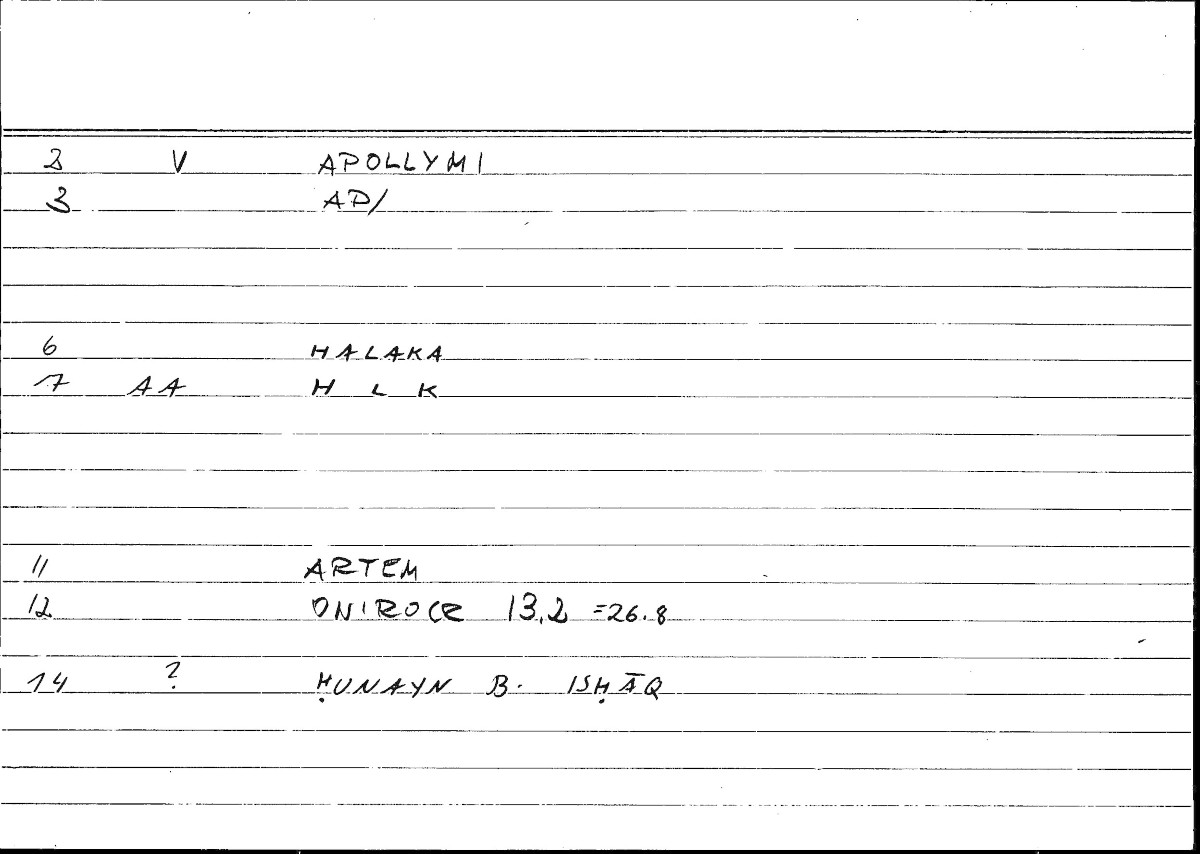 2 V APOLLYMI
3 AP/
6 HALAKA
7 AA H L K
11 ARTEM
12 ONIROCR 13,2 =26.8
14 ? ḤUNAYN B. ISḤĀQ